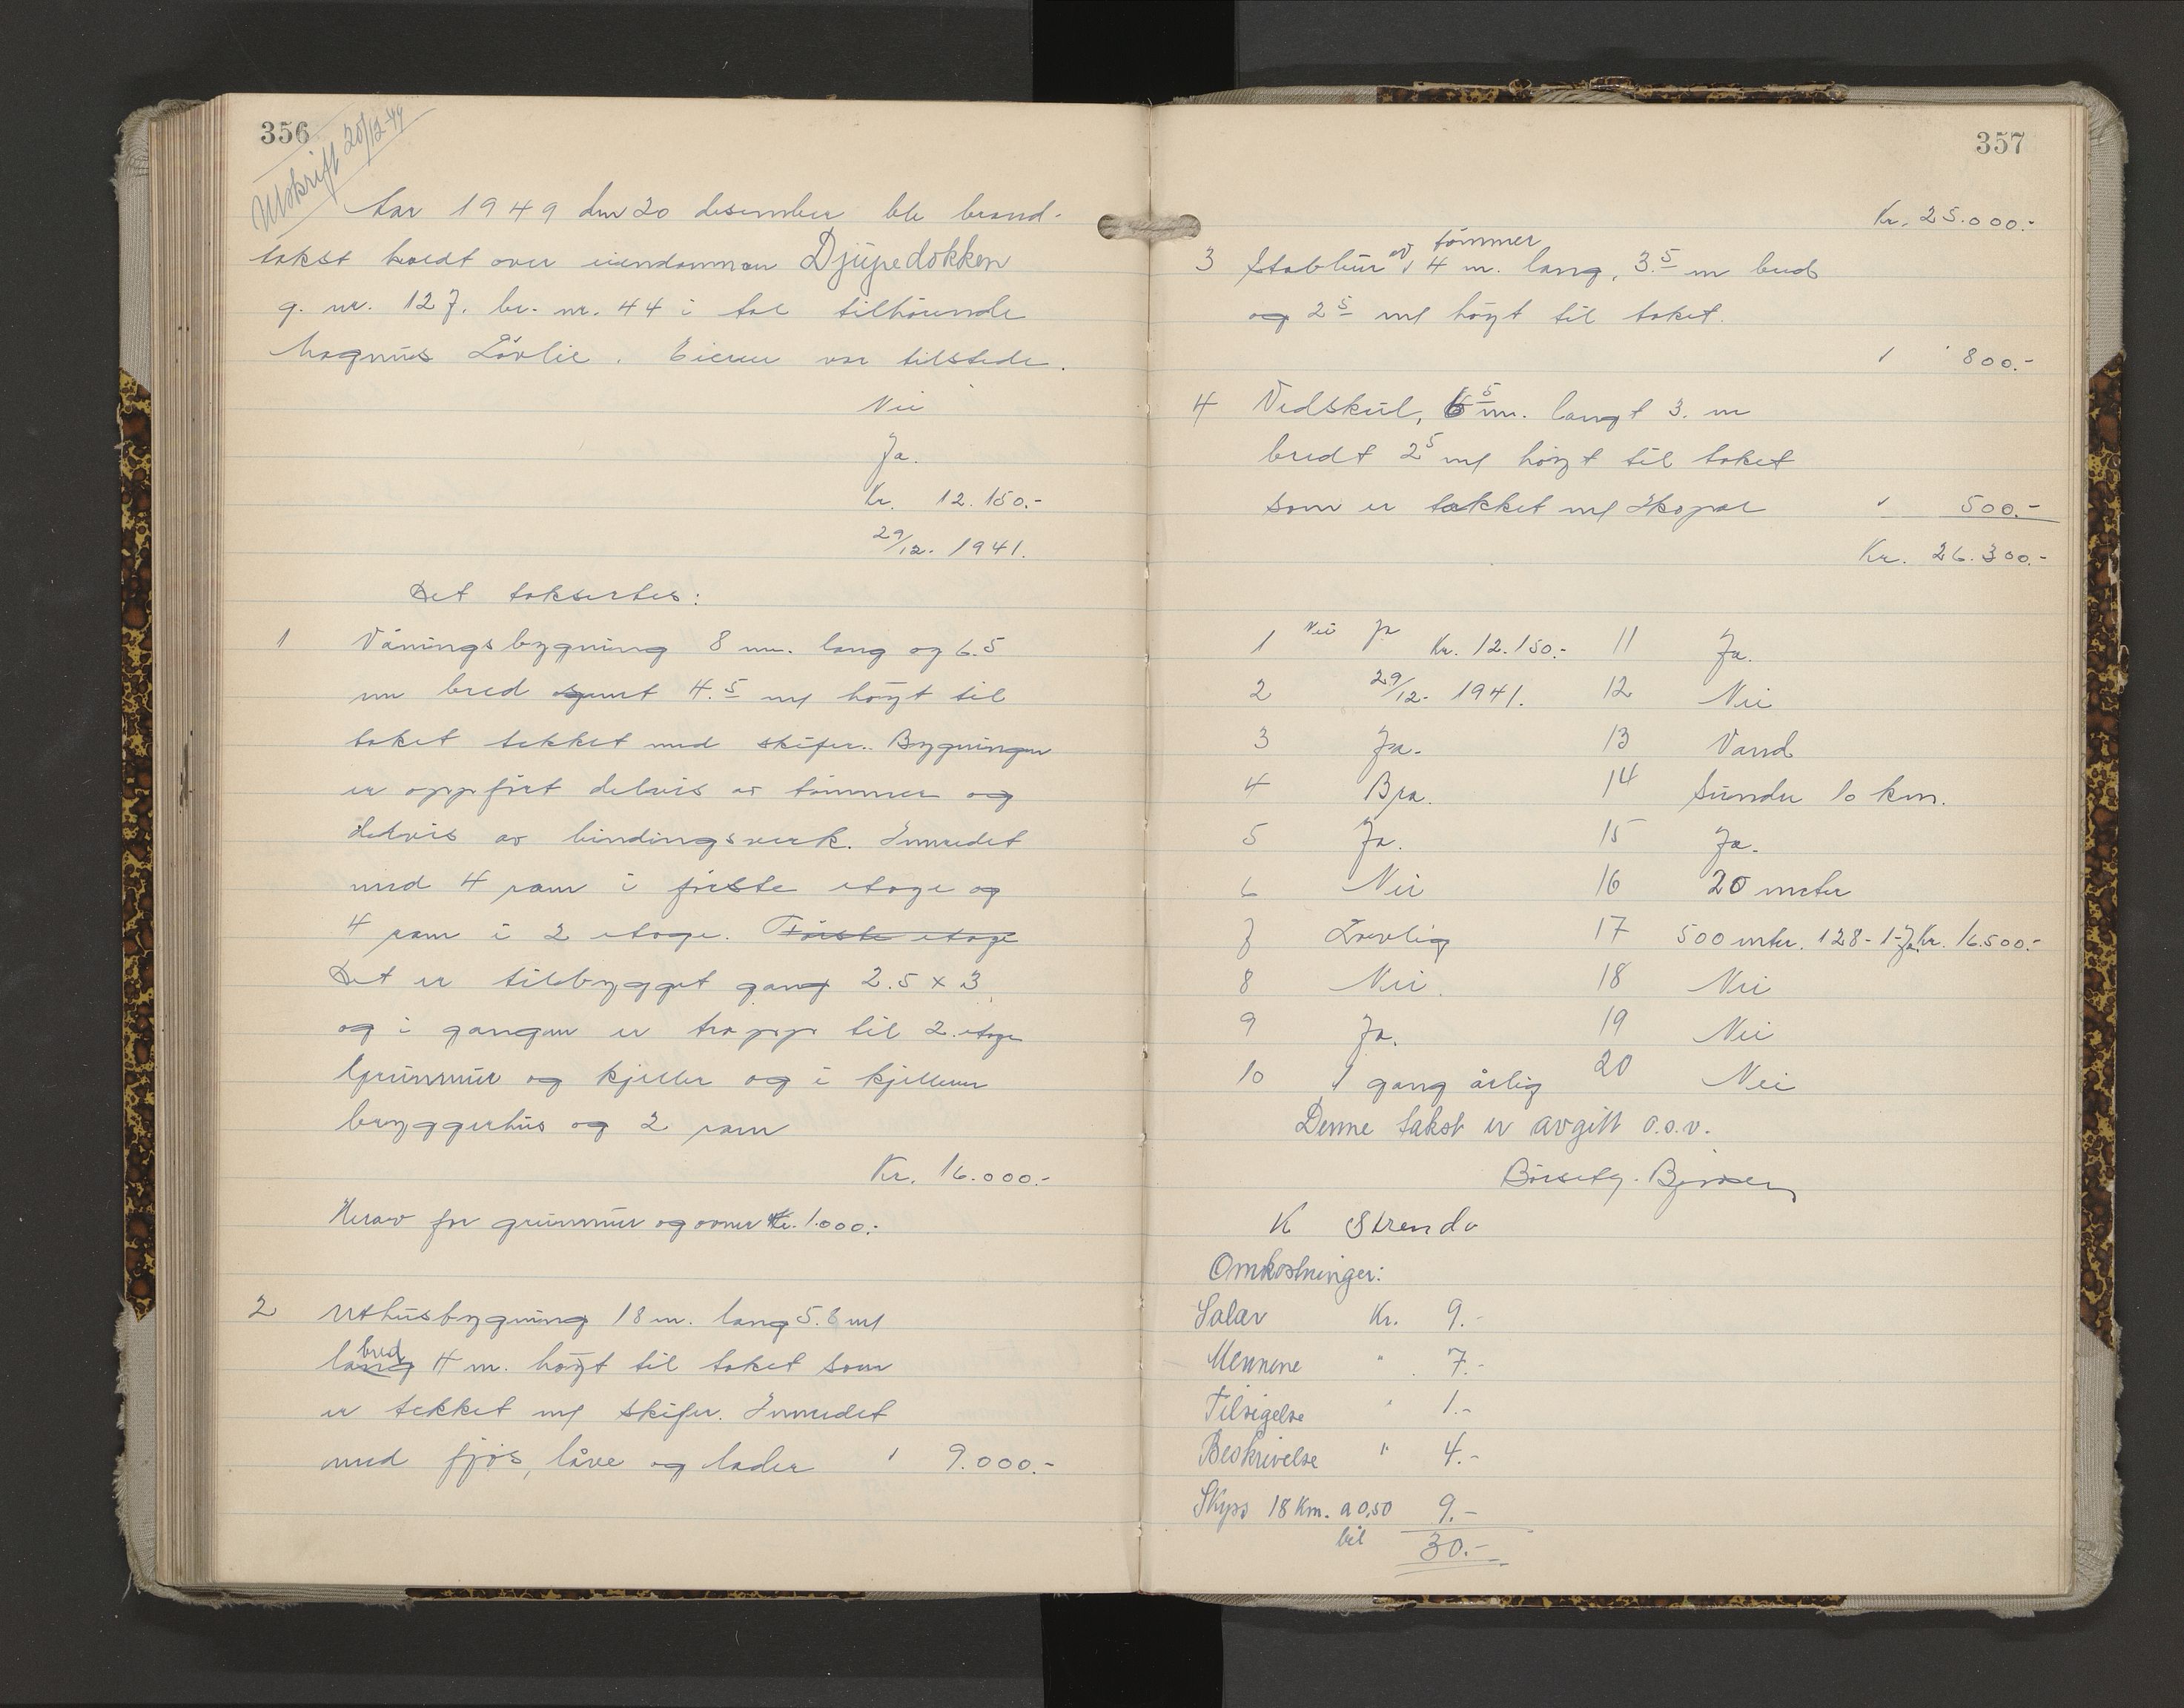 356
Utskrift 20/12-49
Aar 1949 den 20 desember ble brand-
takst holdt over eiendommen Djupedokken
g. nr. 127. br. nr. 44 i Aal tilhørende
Magnus Løvlie. Eieren var tilstede.
Nei
Ja.
Kr. 12.150.-
29/12. 1941.
Det taksertes:
1 Våningsbygning 8 m. lang og 6.5
m bred samt 4.5 m høgt til
taket tekket med skifer. Bygningen
er oppført delvis av tømmer og
delvis av bindingsverk. Innredet
med 4 rom i første etage og
4 rom i 2 etage. Første etage
Det er tilbygget gang 2.5 x 3
og i gangen er trapp til 2. etage
Grunnmur og kjeller og i kjelleren
bryggerhus og 2 rom
Kr. 16.000.-
Herav for grunnmur og ovner Kr. 1.000.-
2 Uthusbygning 18 m. lang 5.8 m
lang bred 4 m. høgt til taket som
er tekket m/ skifer. Innredet
med fjøs, låve og lader " 9.000.-
357
Kr. 25.000.-
3 Stabbur av tømmer 4 m. lang, 3.5 m bred
og 2.5 m høgt til taket.
" 800.-
4 Vedskul, 6.5 m. langt 3. m
bredt 2.5 m høgt til taket
som er takket m/ Ikopal " 500.-
Kr. 26.300.-
1 Nei Ja Kr. 12.150.- 11 Ja.
2 29/12- 1941. 12 Nei
3 Ja. 13 Vand
4 Bra. 14 Sundre 10 km.
5 Ja. 15 Ja.
6 Nei 16 20 meter
7 Lovlig 17 500 meter. 128-1-Ja. Kr. 16.500.-
8 Nei. 18 Nei
9 Ja. 19 Nei
10 1 gang årlig 20 Nei
Denne takst er avgitt o.s.v.
K Strende
Omkostninger:
Salær Kr. 9.-
Mennene " 7.-
Tilsigelse " 1.-
Beskrivelse " 4.-
Skyss 18 Km. a 0,50 9.-
bil 30.-